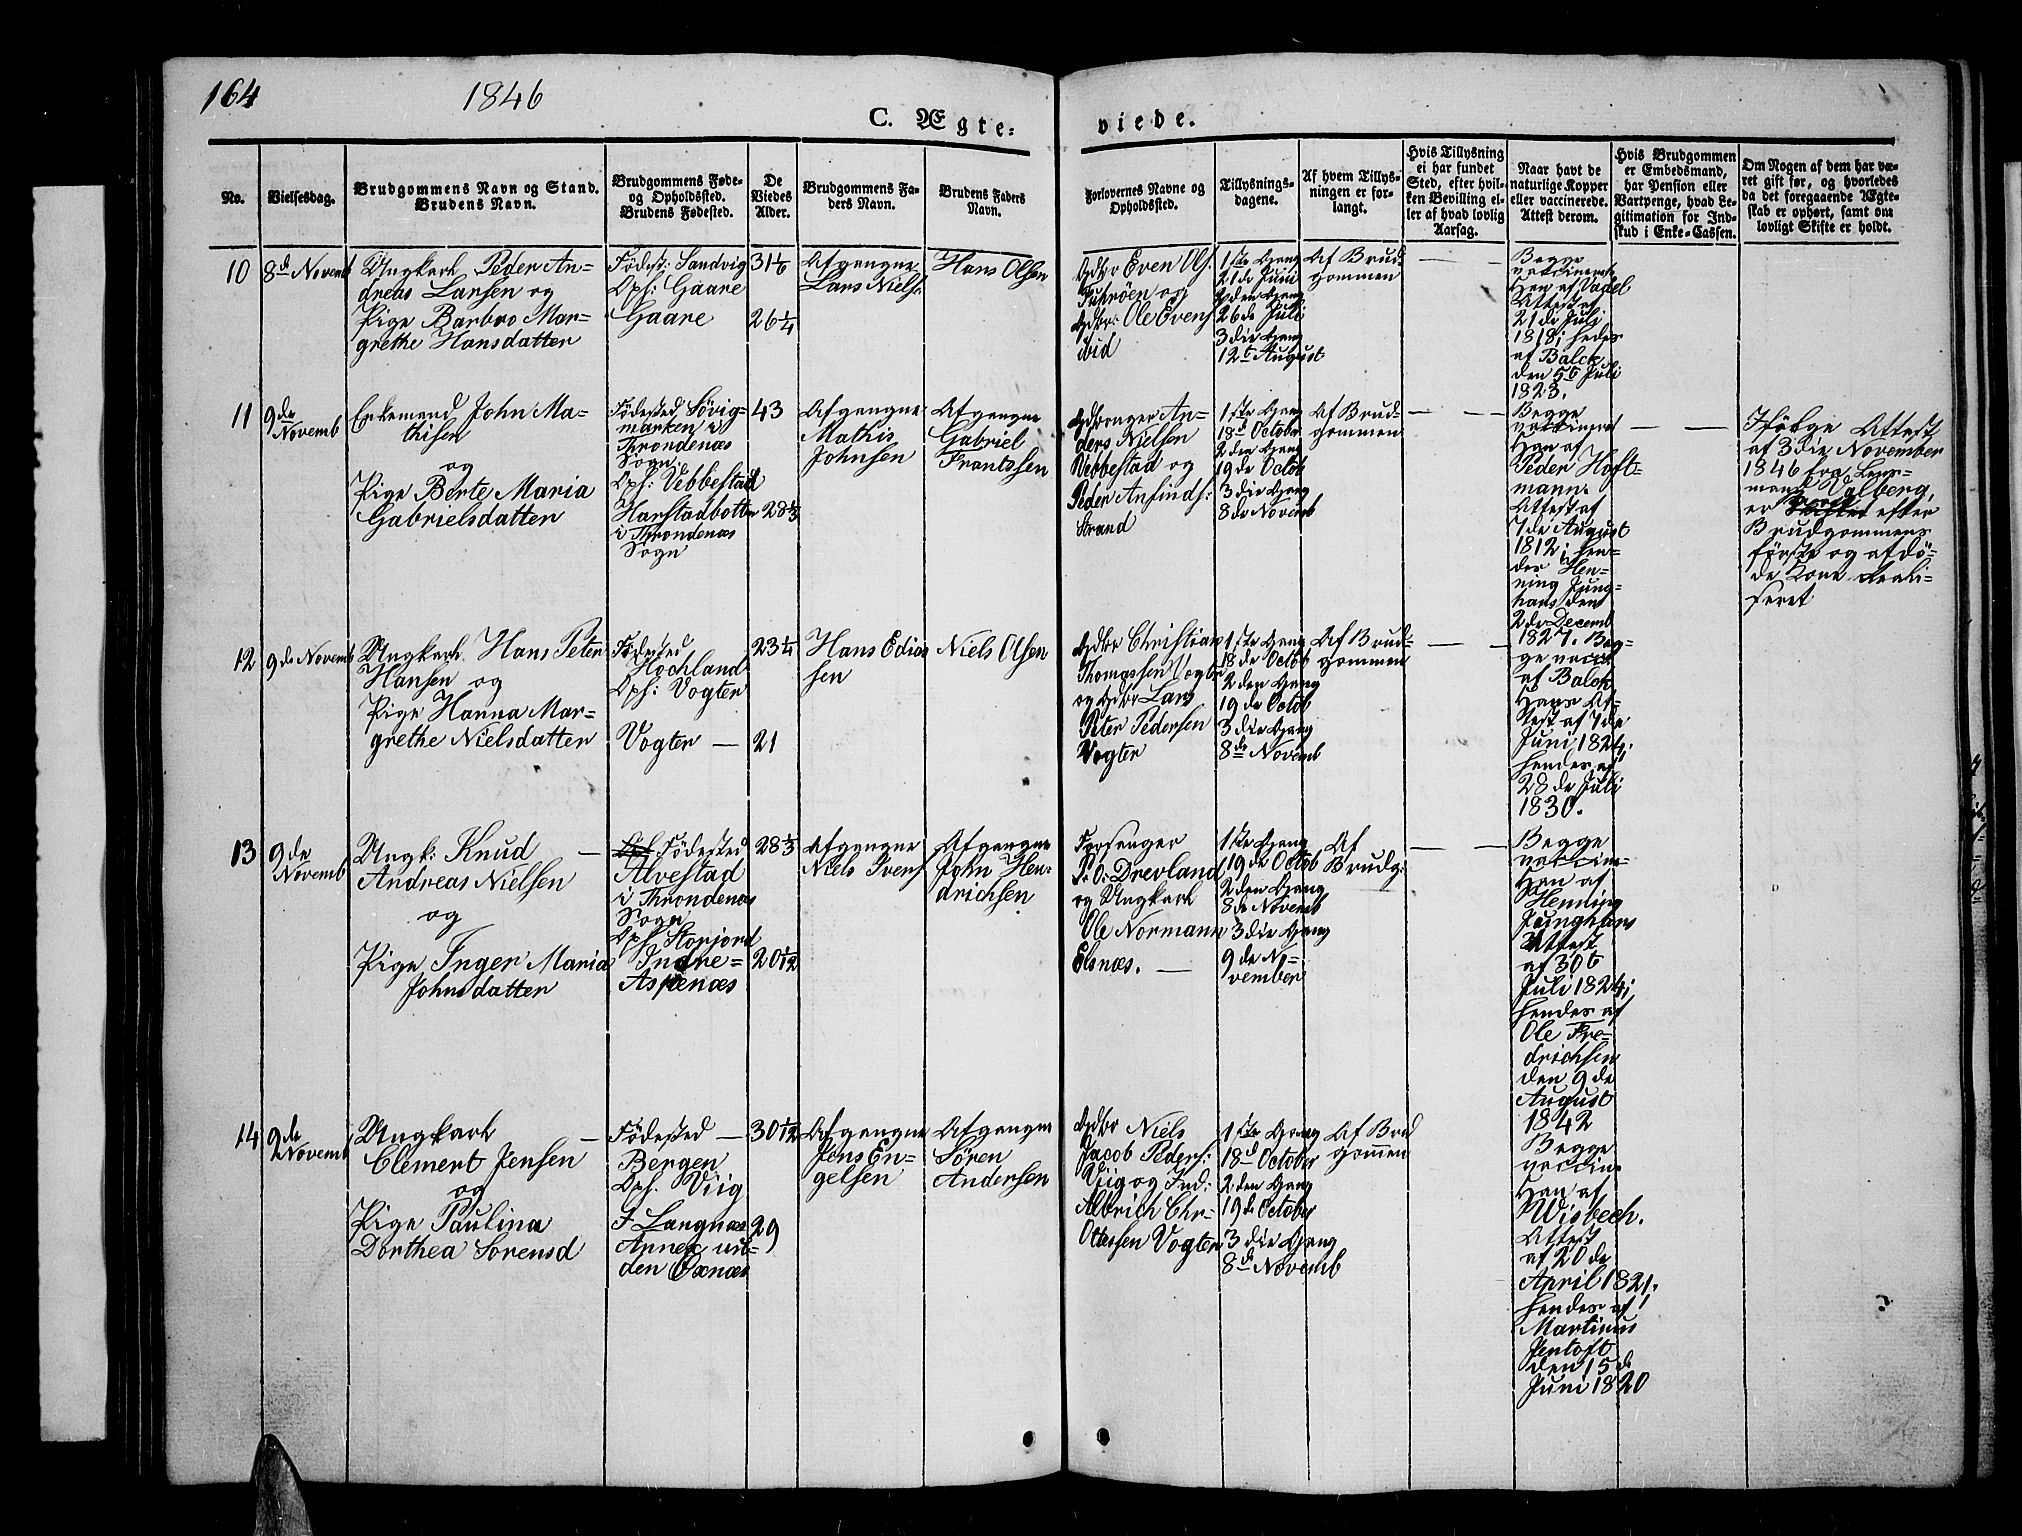 164
1846
C. Ægte=
viede.
No.
Vielsesdag.
Brudgommens Navn og Stand.
Brudens Navn.
Brudgommens Føde-
og Opholdssted.
Brudens Fødested.
De
Viedes
Alder.
Brudgommens Fa-
ders Navn.
Brudens Faders
Navn.
Forlovernes Navne og
Opholdssted.
Tillysnings-
dagene.
Af hvem Tillys-
ningen er for-
langt.
Hvis Tillysning
ei har fundet
Sted, efter hvil-
ken Bevilling el-
ler af hvad lovlig
Aarsag.
Naar havt de
naturlige Kopper
eller vaccinerede.
Attest derom.
Hvis Brudgommen
er Embedsmand,
har Pension eller
Vartpenge, hvad Le-
gitimation for Ind-
skud i Enke-Cassen.
Om Nogen af dem har væ-
ret gift før, og hvorledes
da det foregaaende Ægte-
skab er ophørt, samt om
lovligt Skifte er holdt.
10
8d Novemb
Ungkarl Peder An-
dreas Larsen og
Pige Barbro Mar-
grethe Hansdatter
Fødest: Sandvig
Oph: Gaare
Gaare
31 1/6
26 1/4
Afgangne
Lars Niels:
Hans Olsen
Gdbr Even Ols.
og
Gdbr: Ole Evens
ibid
1ste Gang
21de Juni
2den Gang
26de Juli
3die Gang
12t August
Af Brud
gommen
Begge
vaccinerede
Han af Vadel
Attest af
21de Juli
1818; hedes
af Balck
den 5t Juli
1823.
11
9de
Novemb
Enkemand John Ma-
thisen
og
Pige Berte Maria
Gabrielsdatter
Fødested Sövig-
marken i
Throndenæs
Sogn
Oph: Vebbestad
Harstadbotten
i Throndenæs
Sogn
43
28 1/3
Afgangne
Mathis
Johnsen
Afgangne
Gabriel
Frantssen
Gdbrenger An-
ders Nielsen
Vebbestad og
Peder Arfinds:
Strand
1ste Gang
18d October
2den Gang
19de Octob
3die Gang
8de Novemb
Af Brud-
gommen
Begge
vaccineret
Han af
Peder Hoft-
mann.
Attest af
7de August
1812; hen-
des Hen-
ning Jung-
hans den
2de Decemb
1827.
Ifölge Attest
af 3die November
1846 fra Lens-
mand Valberg,
er efter
Brudgommens
förste og afdö-
de Kone deali-
seret
12
9de Novemb
Ungkarl Hans Peter
Hansen og
Pige Hanna Mar-
grethe Nielsdatter
Fødested
Hochland
Oph: Vogter
Vogter —
23 1/4
21
Hans Edias
sen
Niels Olsen
Gdbr Christian
Thomassen Vogter
og Gdbr Lars
Peter Pedersen
Vogter
1ste Gang
18de Octob
2den Gang
19de Octob
3die Gang
8de Novemb
Af Brud-
gommen
Beg-
ge vacci
af Balck
Hans At-
test af 7de
Juni 1824;
hendes af
28de Juli
1830.
13
9de
Novemb
Ungk: Knud —
Andreas Nielsen
og
Pige Inger Maria
Johnsdatter
Fødested
Alvestad
i Throndenæs
Sogn
Oph Storjord
Indre=
Aspenæs
28 1/3
20 1/12
Afgangne
Niels Ivers
Afgangne
John Hen-
drichsen
Forsanger
P. O: Drevland
og Ungkarl
Ole Normann
Elsnæs. —
1ste Gang
19de Octob
2den Gang
8de Novemb
3die Gang
9de No-
vember
Af
Brudg:
Begge
vaccin-
Han af
Henning
Junghans
Attest
af 30t
Juli 1824;
hendes af
Ole Fre-
drichsen
den 9de
August
1842
14
9de
Novemb
Ungkarl —
Clement Jensen
og
Pige Paulina
Dorthea Sorensd
Fødested —
Bergen
Oph. Viig
F. Langnæs
Apnex ut-
den Oxnæs
30 1/12
29
Afgangne
Jens En-
gelsen
Afgangne
Sören
Andersen
Gdbr Niels
Jacob Peders:
Viig og Ind:
Albrich Chr-
Ottessen Vogter
1ste Gang
18d October
2den Gang
19de October
3die Gang
8de Novemb
Af Brud
gommen
Begge
vaccin-
Han af
Wisbech.
Attest
af 20de
April 1821.
hendes af
Martinus
Jentoft
den 15d
Juni 1820